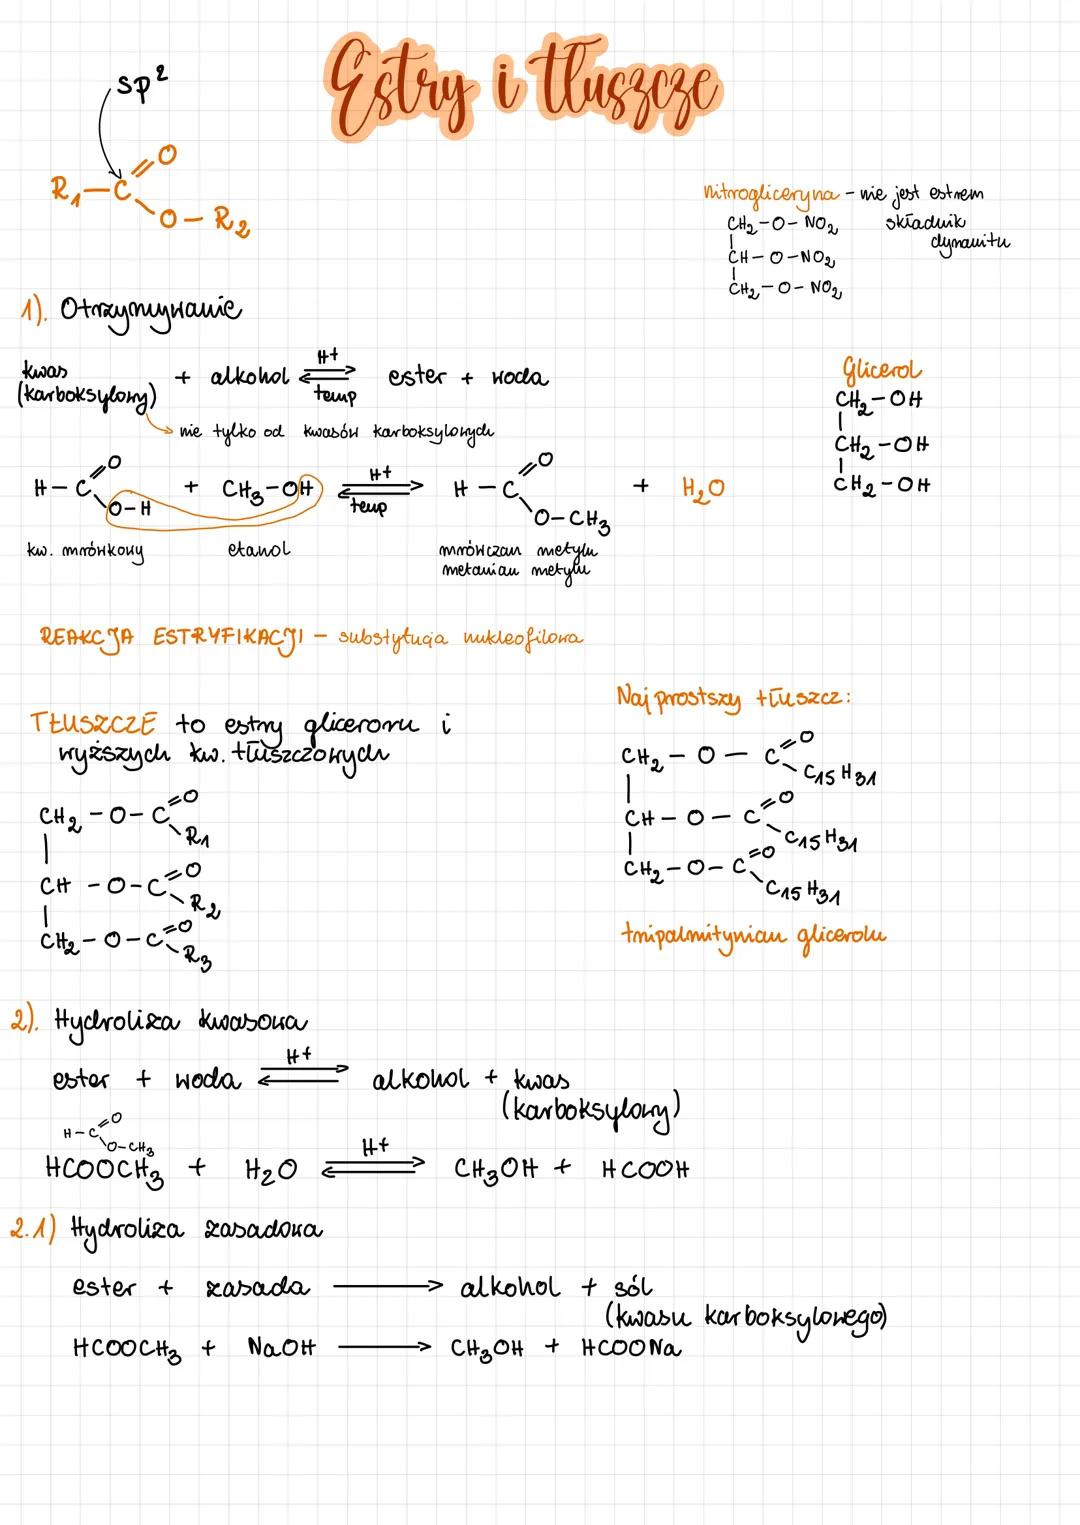 Estry i tłuszcze
sp²
R₁—C=O
O—R₂
nitrogliceryna - nie jest estrem
składnik
dynamitu
CH₂-O-NO₂
CH-O-NO₂
CH₂-O-NO₂
1). Otrzymywanie
kwas
(karboksylowy) + alkohol ⇌ ester + woda
H+
temp
nie tylko od kwasów karboksylowych
Glicerol
CH₂-OH
CH₂-OH
CH₂-OH
H-C=O
O-H + CH₃-OH ⇌ H-C=O
O-CH₃ + H₂O
H+
temp
kw. mrówkowy etanol mrówczan metylu
metanian metylu
REAKCJA ESTRYFIKACJI - substytucja nukleofilowa
TŁUSZCZE to estry gliceroru i
wyższych kw. tłuszczowych
CH₂-O-C=O
R₁
CH-O-C=O
R₂
CH₂-O-C=O
R₃
Najprostszy tłuszcz:
CH₂-O-C=O
C15H31
CH-O-C=O
C15H31
CH₂-O-C=O
C15H31
tripalmitynian glicerolu
2). Hydroliza kwasowa
ester + woda ⇌ alkohol + kwas
H+
(karboksylowy)
H-C=O
O-CH₃
HCOOCH₃ + H₂O ⇌ CH₃OH + HCOOH
H+
2.1) Hydroliza zasadowa
ester + zasada → alkohol + sól
(kwasu karboksylowego)
HCOOCH₃ + NaOH → CH₃OH + HCOONa